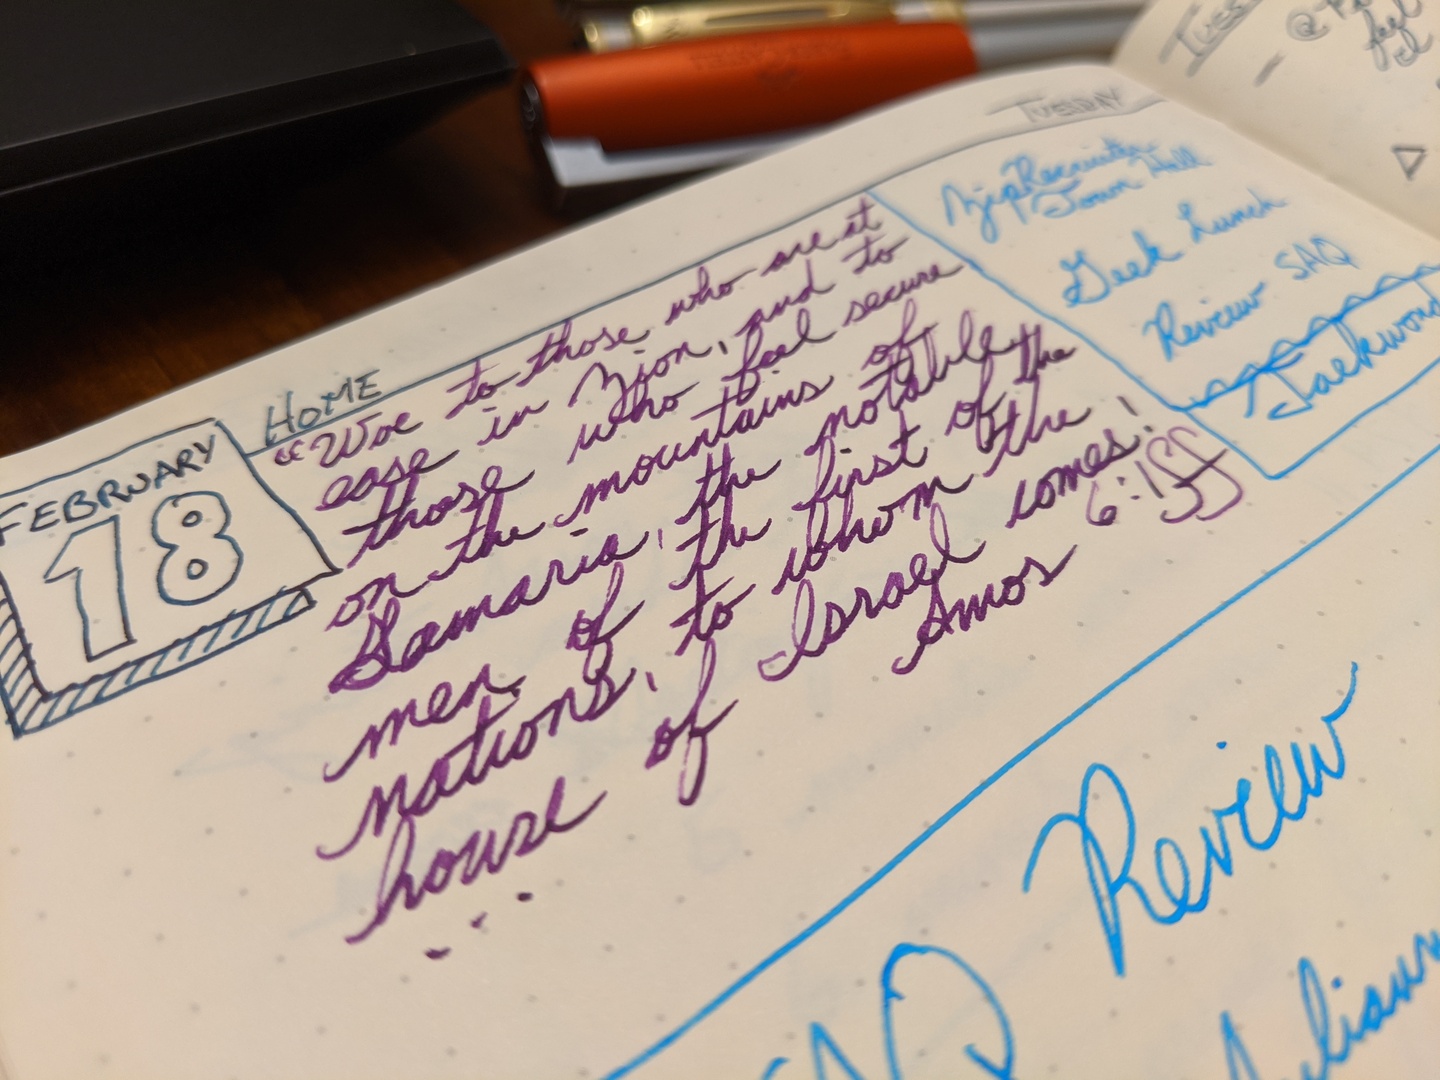 TUESDAY
HOME
FEBRUARY
18
"Woe to those who are at
ease in Zion, and to
those who feel secure
on the mountains of
Samaria, the notable
men of the first of the
nations, to whom the
house of Israel comes!
... Amos 6:1ff
ZipRecruiter
Town Hall
Geek Lunch
Review SAQ
Taekwondo
SAQ Review